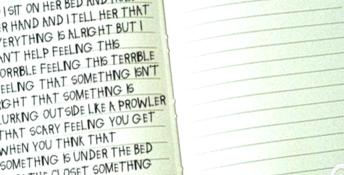 I SIT ON HER BED AND HOLD
HER HAND AND I TELL HER THAT
EVERYTHING IS ALRIGHT BUT I
CAN'T HELP FEELING THIS
HORRIBLE FEELING THIS TERRIBLE
FEELING THAT SOMETHING ISN'T
RIGHT THAT SOMETHING IS
LURKING OUTSIDE LIKE A PROWLER
THAT SCARY FEELING YOU GET
WHEN YOU THINK THAT
SOMETHING IS UNDER THE BED
THE CLOSET SOMETHING